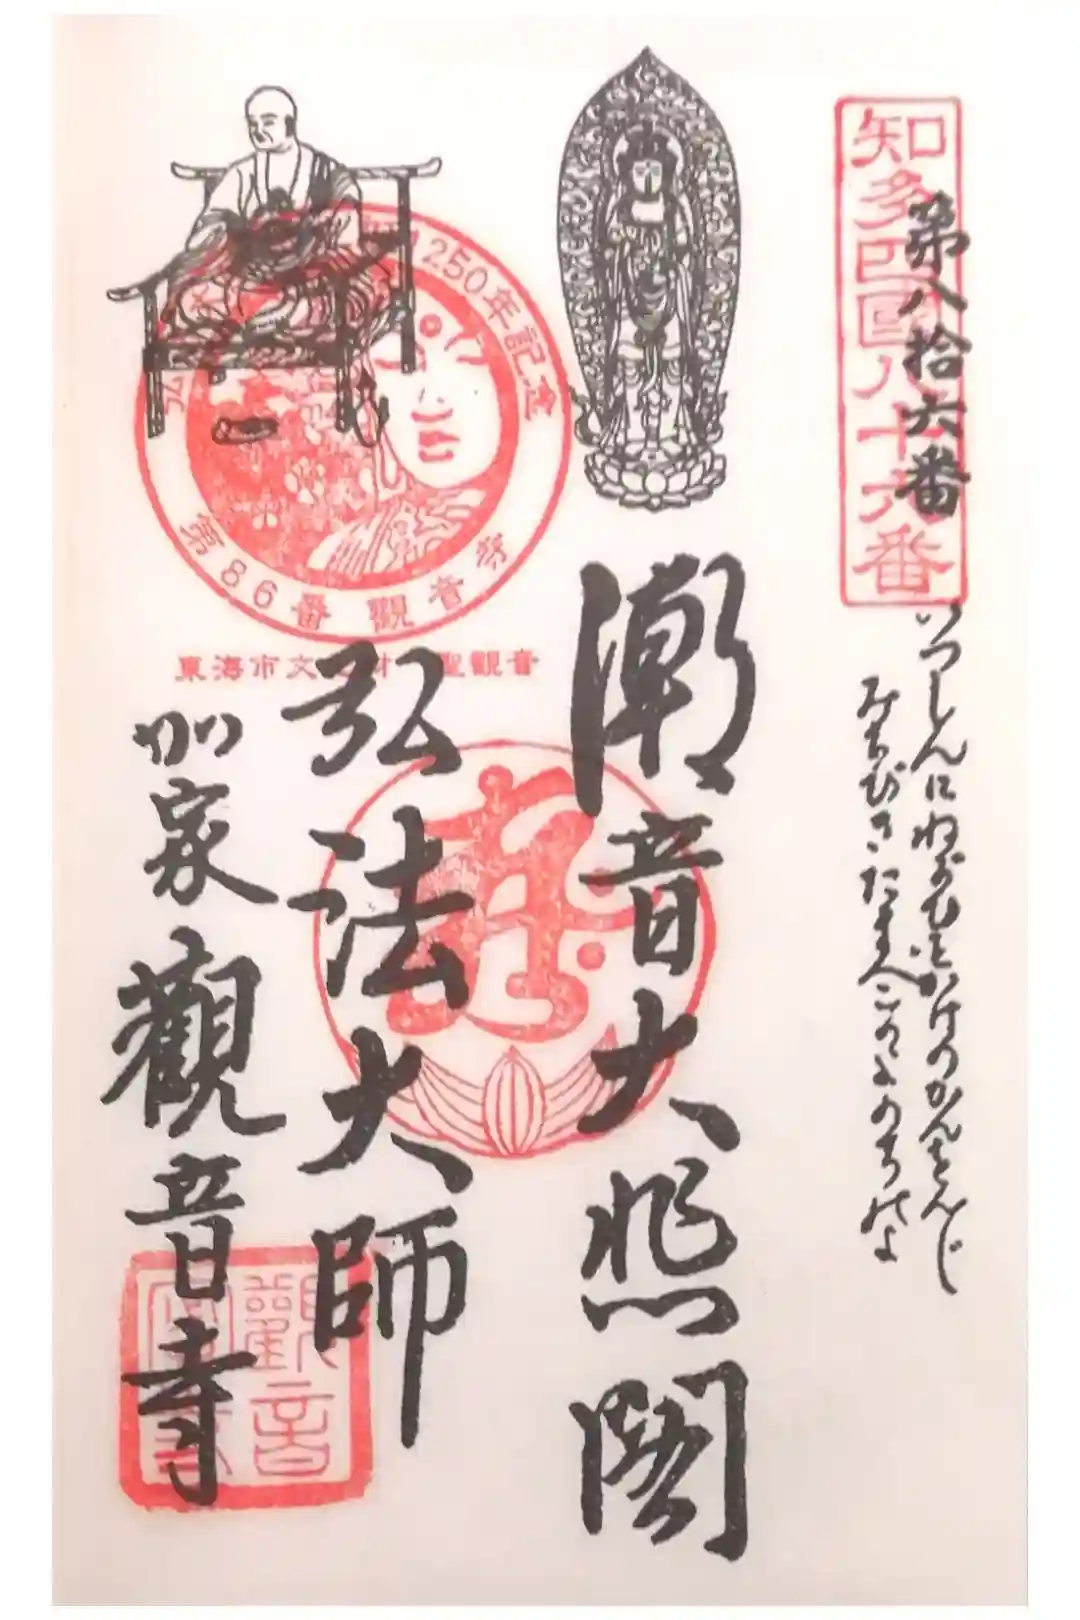 知多四國八十六番
第八拾六番
いつしんにねがひをかけのかんをんじ
みちびきたまへこのよのちのよ
潮音大悲閣
弘法大師
加家觀音寺
1250年記念
第86番觀音寺
東海市文化財 聖觀音
觀音